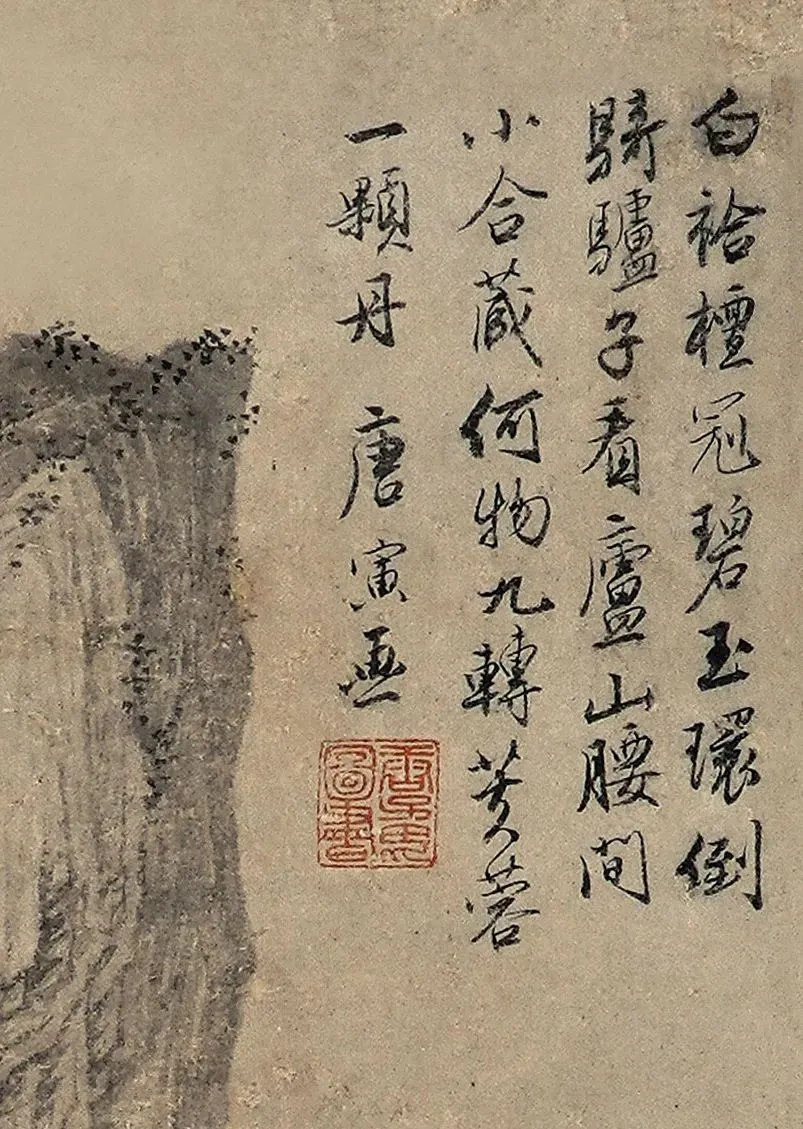 白袷檀冠碧玉環倒
騎驢子看廬山腰間
小合藏何物九轉芙蓉
一顆丹 唐寅画